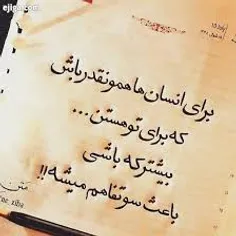 برای انسان ها همونقدر باش
که برای تو هستن...
بیشتر که باشی
باعث سوتفاهم میشه!!